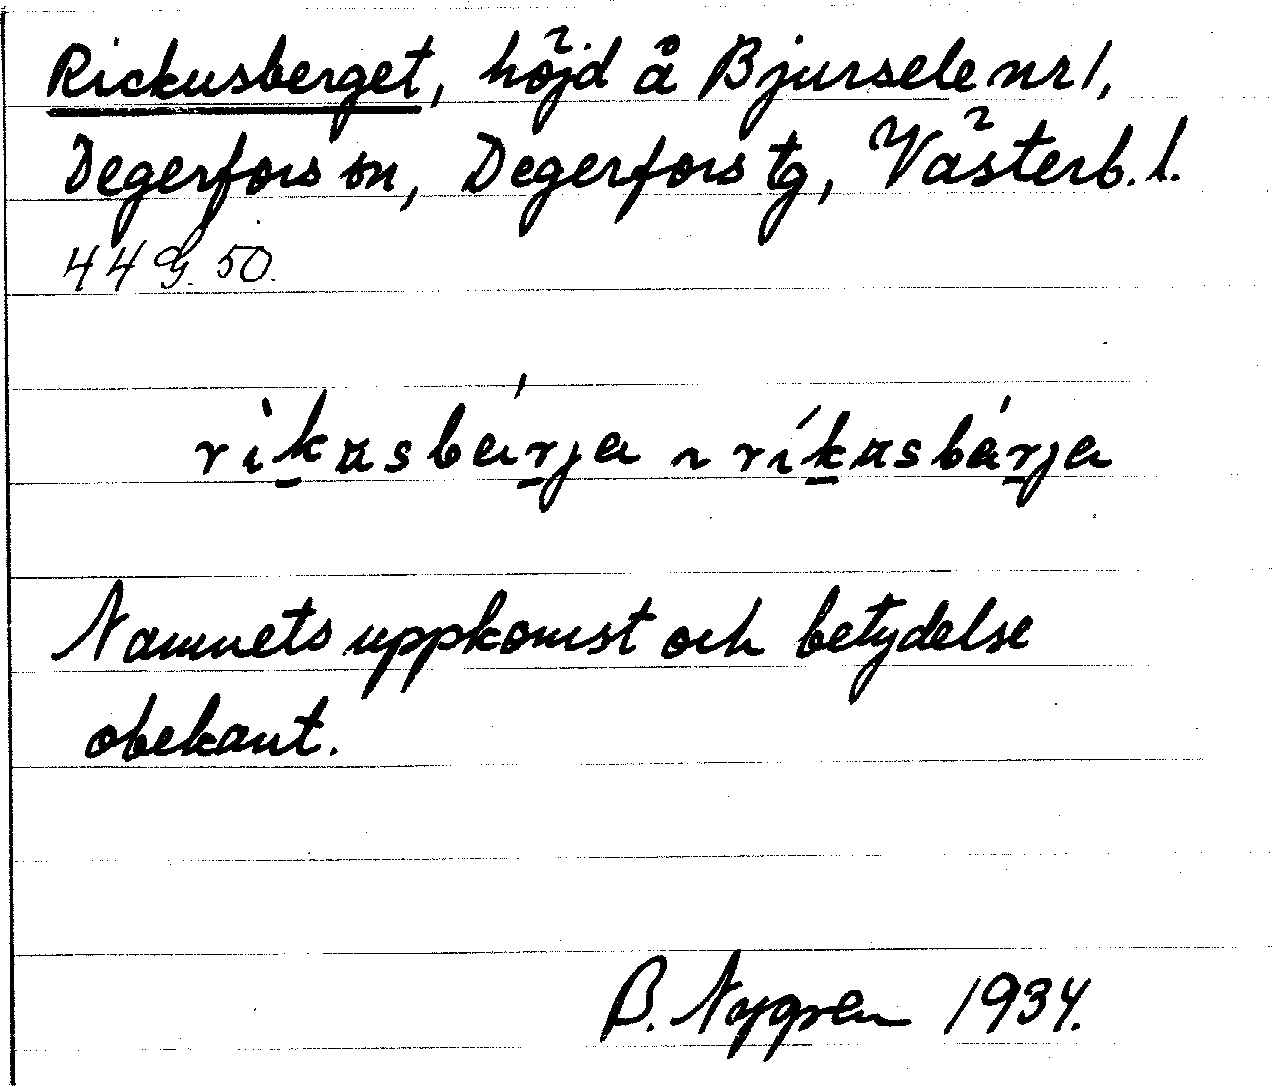 Rickusberget, höjd å Bjursele nr 1,
Degerfors sn, Degerfors tg, Västerb. l.
44 G. 50.
rìkusbá́rja ~ ríkusbárja
Namnets uppkomst och betydelse
obekant.
B. Nygren 1934.